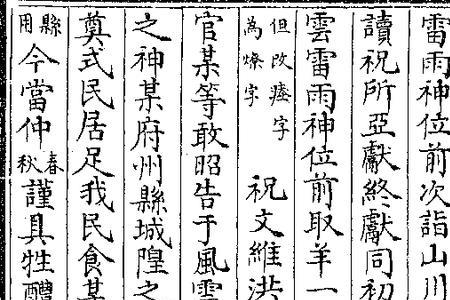 雷雨神位前次詣山川
讀祝所亞獻終獻同初
雲雷雨神位前取羊一
但改瘞字為燎字 祝文維洪
官某等敢昭告于風雲
之神某府州縣城隍之
奠式民居足我民食某
縣用今當仲春秋謹具牲醴